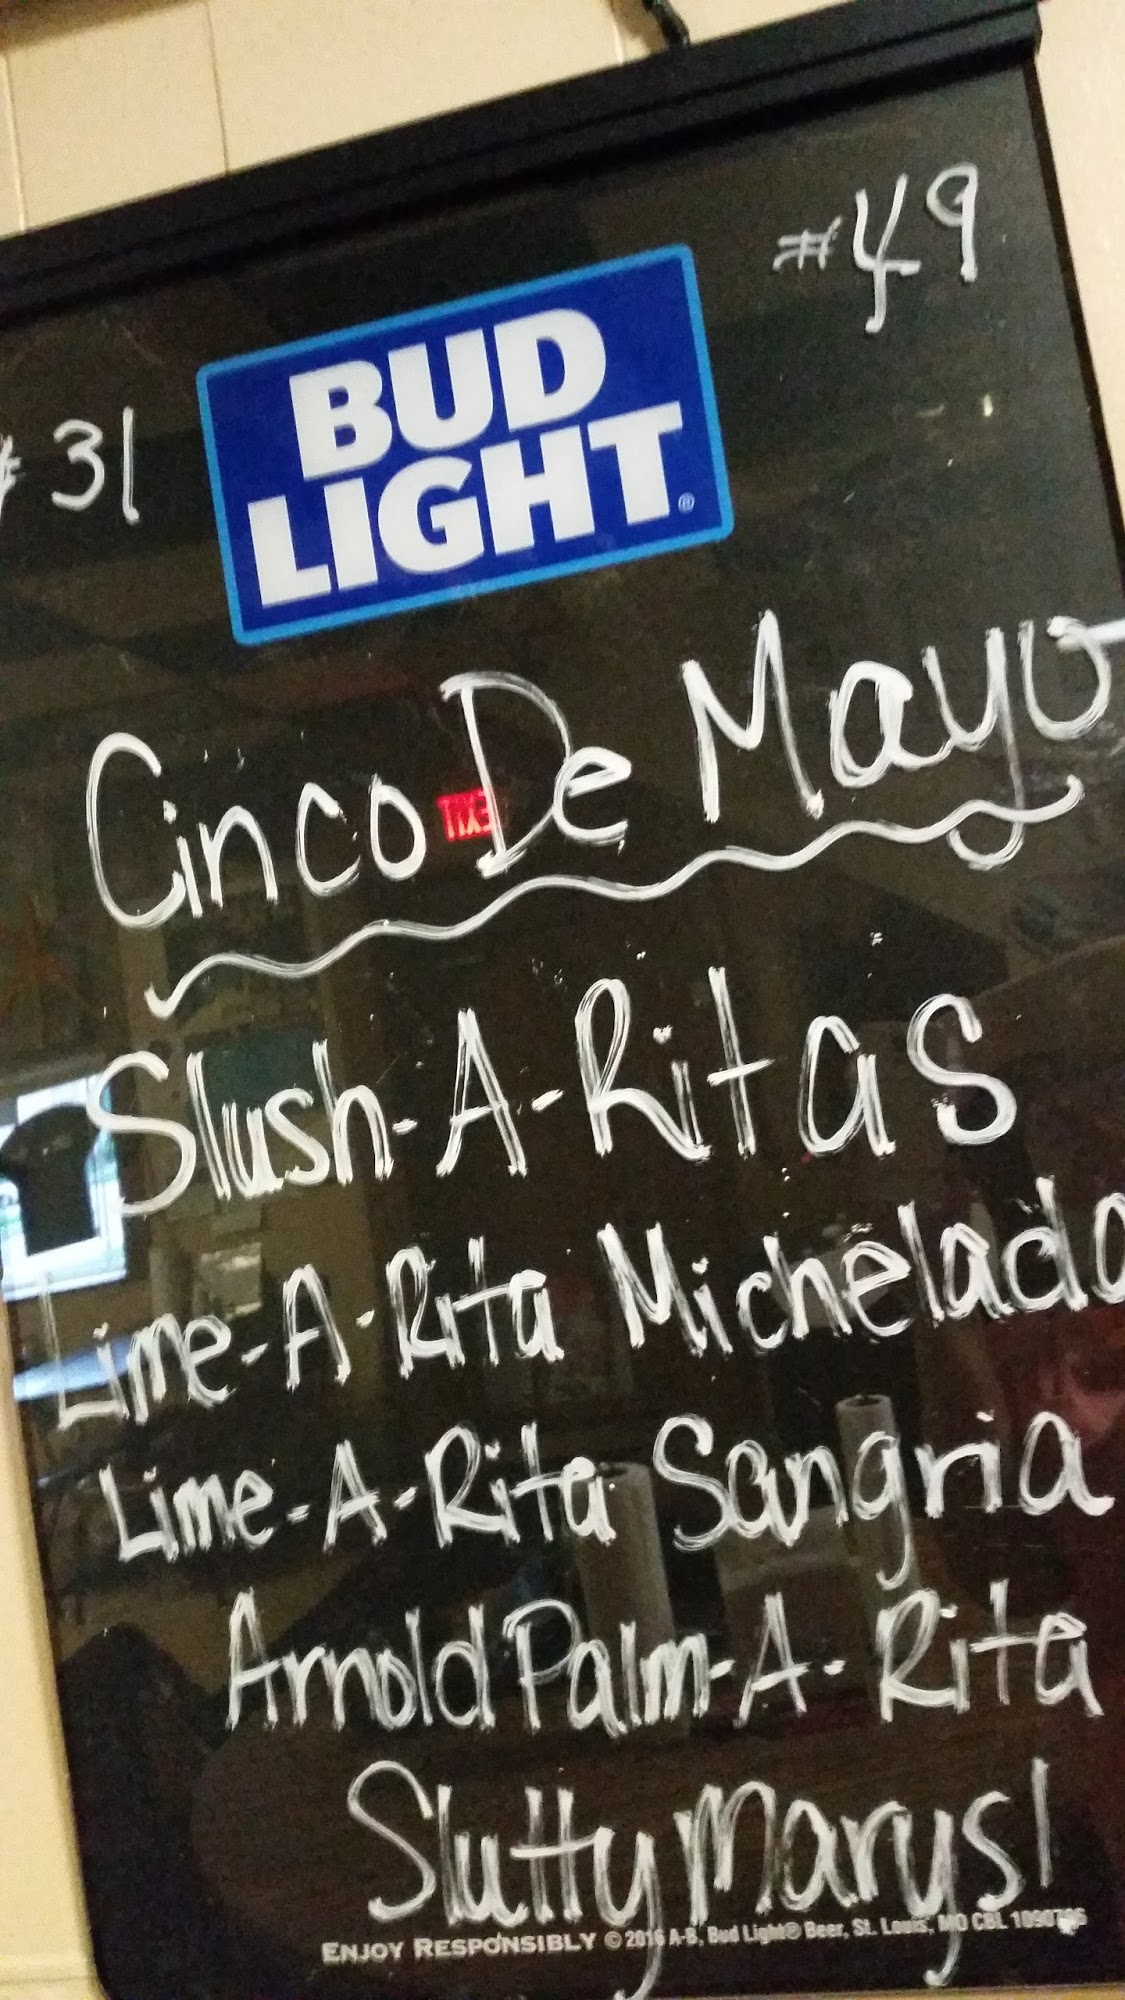 #49
BUD
LIGHT®
#31
Cinco De Mayo
EXIT
Slush-A-Ritas
Lime-A-Rita Michelada
Lime-A-Rita Sangria
Arnold Palm-A-Rita
Slutty Marys!
ENJOY RESPONSIBLY © 2016 A-B, Bud Light® Beer, St. Louis, MO CBL